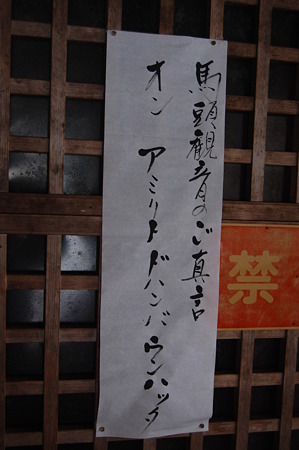 馬頭観音のご真言
オン アミリト ドハンバ ウン ハッタ
禁